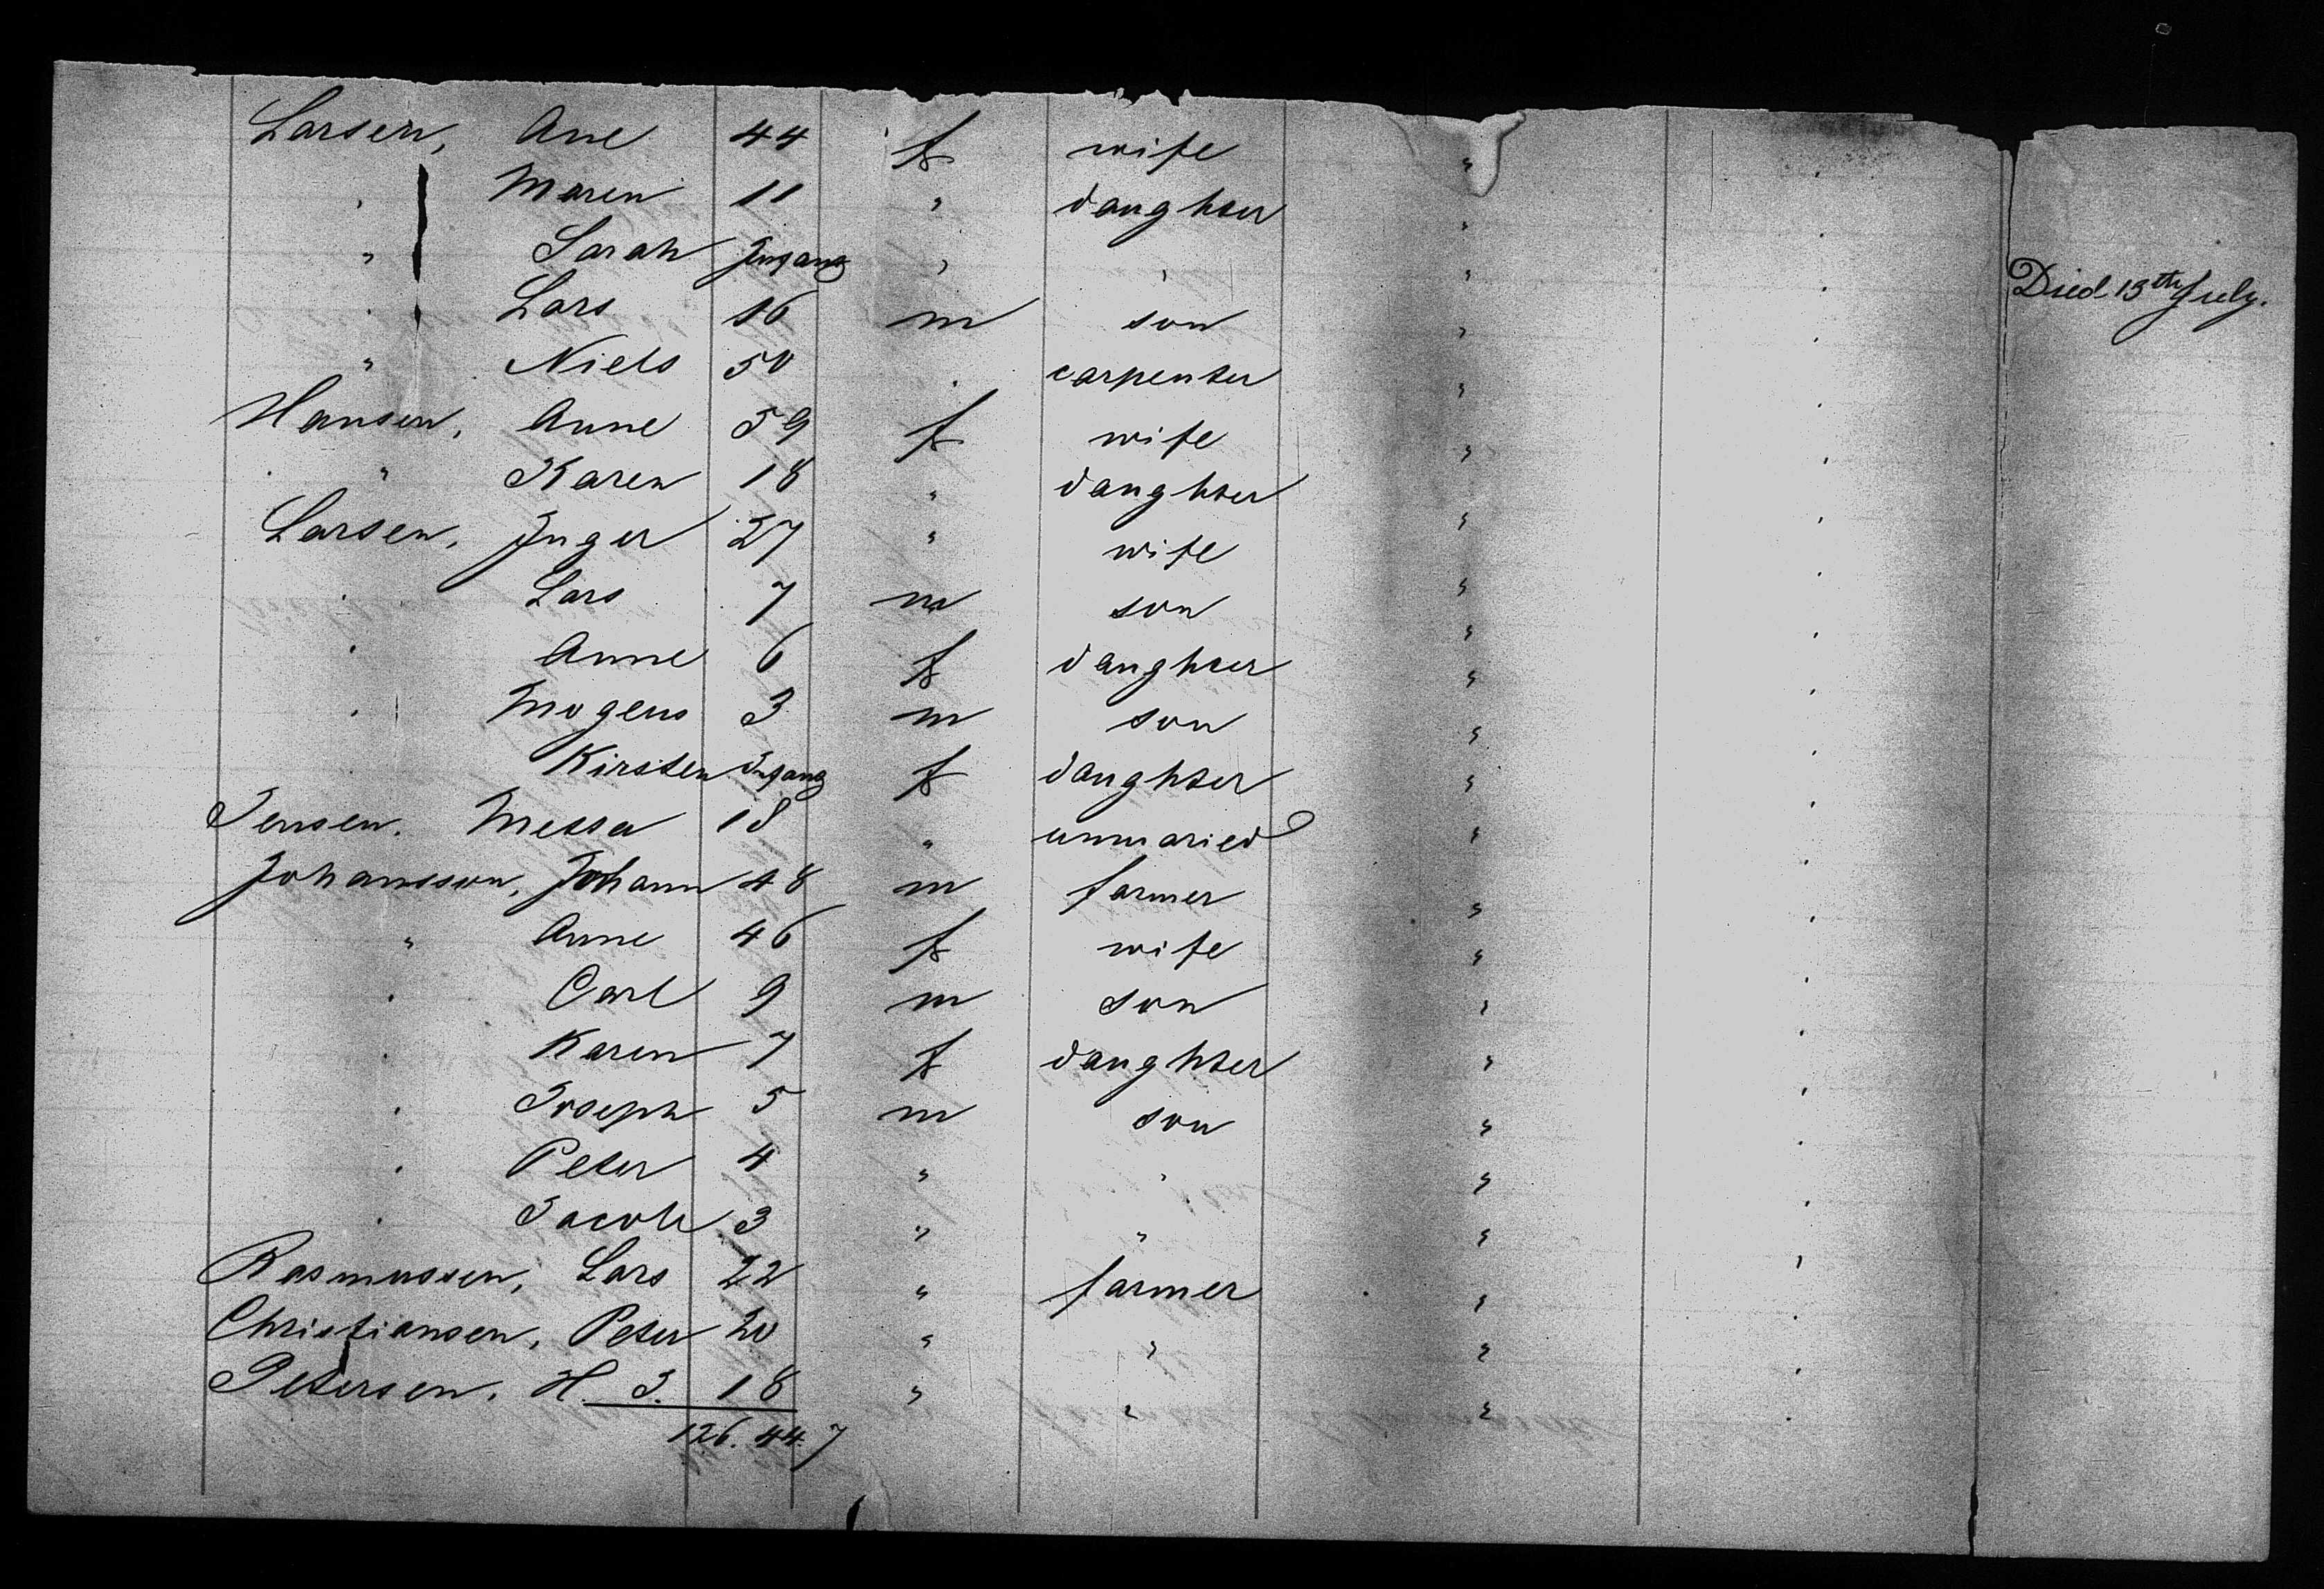 Larsen, Ane 44 f wife "
" Maren 11 " daughter "
" Sarah Infant " " " Died 13th July.
" Lars 16 m son "
" Niels 50 " carpenter "
Hansen, Anne 59 f wife "
" Karen 18 " daughter "
Larsen, Inger 27 " wife "
" Lars 7 m son "
" Anne 6 f daughter "
" Mogens 3 m son "
" Kirsten Infant f daughter "
Jensen. Metta 18 " unmaried "
Johansson, Johann 48 m farmer "
" Anne 46 f wife "
" Carl 9 m son "
" Karen 7 f daughter "
" Joseph 5 m son "
" Peter 4 " " "
" Jacob 3 " " "
Rasmussen, Lars 22 " farmer "
Christiansen, Peter 20 " " "
Petersen, H. J. 18 " " "
126. 44. 7